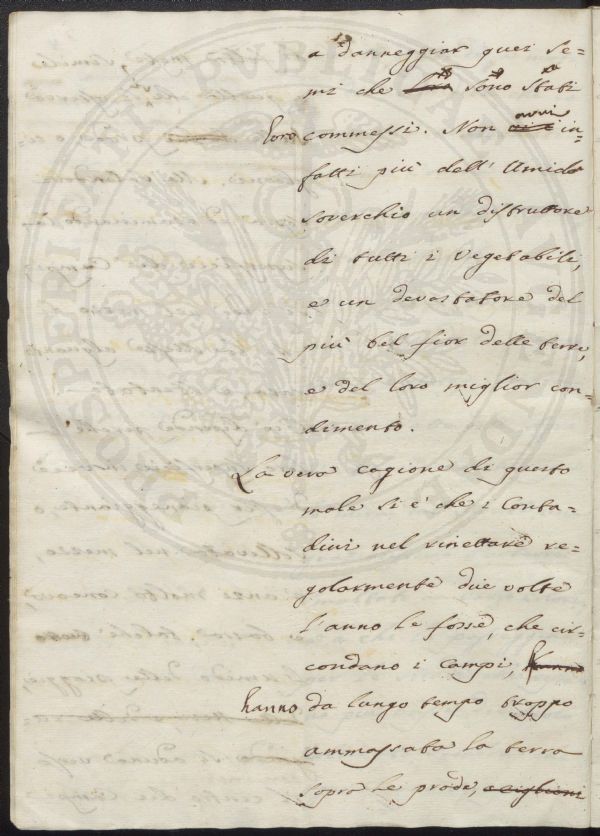 a danneggiar quei se=
mi che sono stati
loro commessi. Non avvi in=
fatti più dell' Umido
soverchio un distruttore
di tutti i vegetabili,
e un devastatore del
più bel fior delle terre,
e del loro miglior con=
dimento.
La vera cagione di questo
male si è che i Conta=
dini nel rinettare re=
golarmente due volte
l'anno le fosse, che cir=
condano i campi,
hanno da lungo tempo troppo
ammassata la terra
sopra le prode,
PROSPERITATI PUBLICAE AUGENDAE